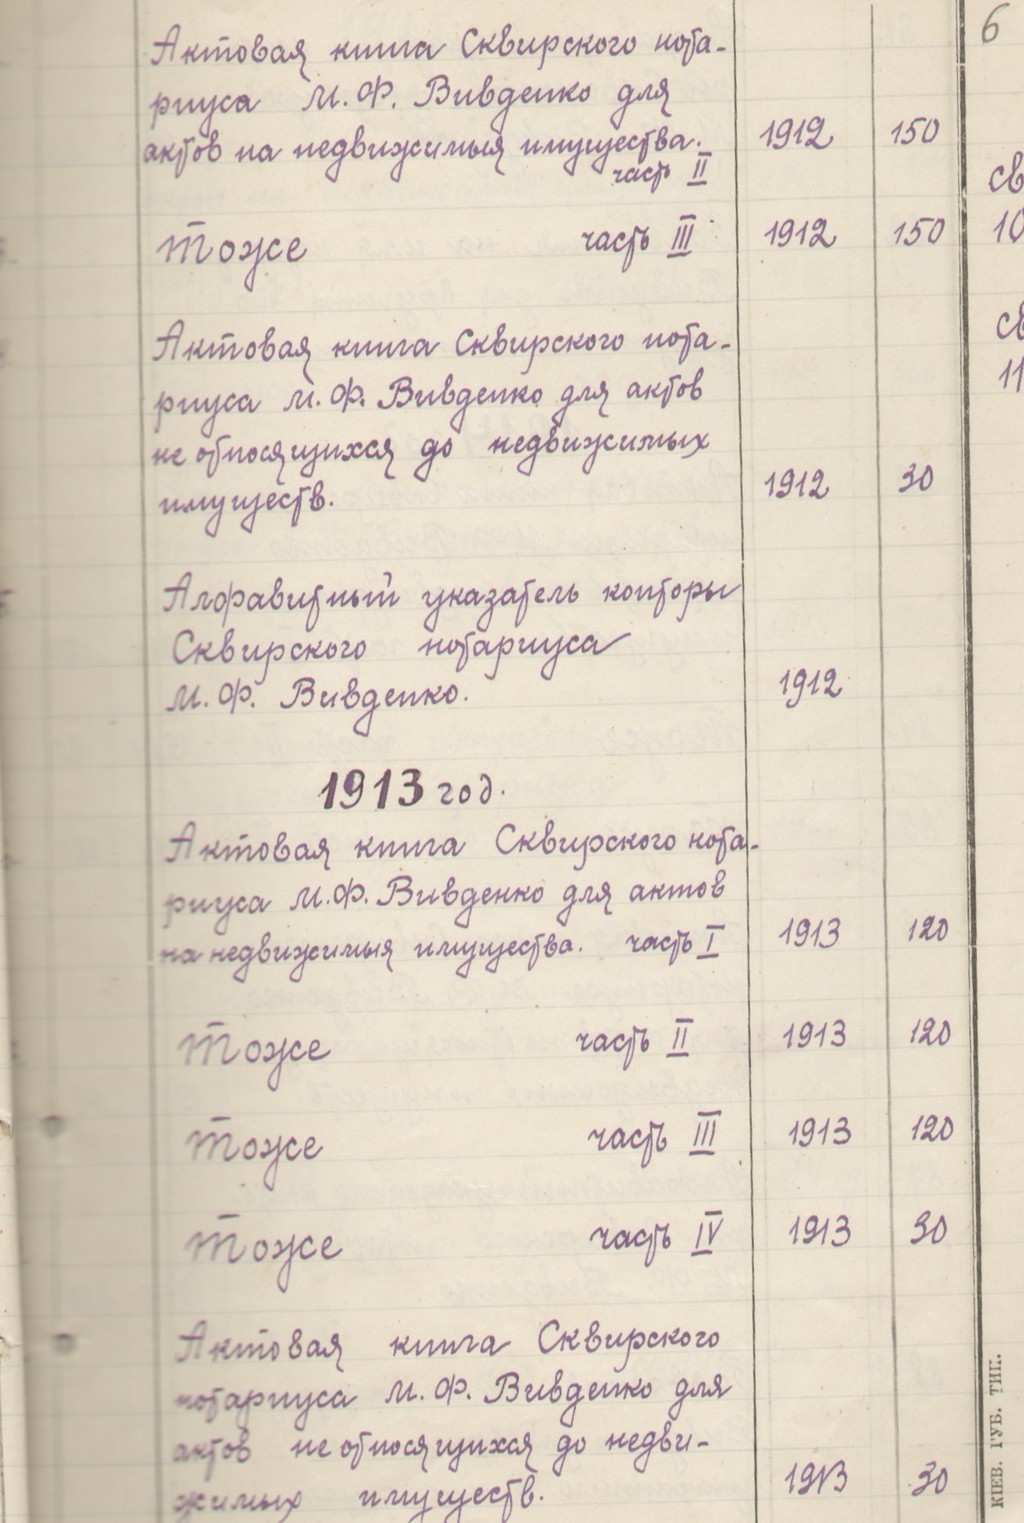 6
Актовая книга Сквирского нота-
риуса М. Ф. Вивденко для
актов на недвижимыя имущества. 1912 150
часть II
св
Тоже часть III 1912 150
10
Актовая книга Сквирского нота-
св
риуса М. Ф. Вивденко для актов
11
не относящихся до недвижимых
имуществ. 1912 30
Алфавитный указатель конторы
Сквирского нотариуса
М. Ф. Вивденко. 1912
1913 год.
Актовая книга Сквирского нота-
риуса М. Ф. Вивденко для актов
на недвижимыя имущества. часть I 1913 120
Тоже часть II 1913 120
Тоже часть III 1913 120
Тоже часть IV 1913 30
Актовая книга Сквирского
нотариуса М. Ф. Вивденко для
актов не относящихся до недви-
жимых имуществ. 1913 30
КІЕВ. ГУБ. ТИП.